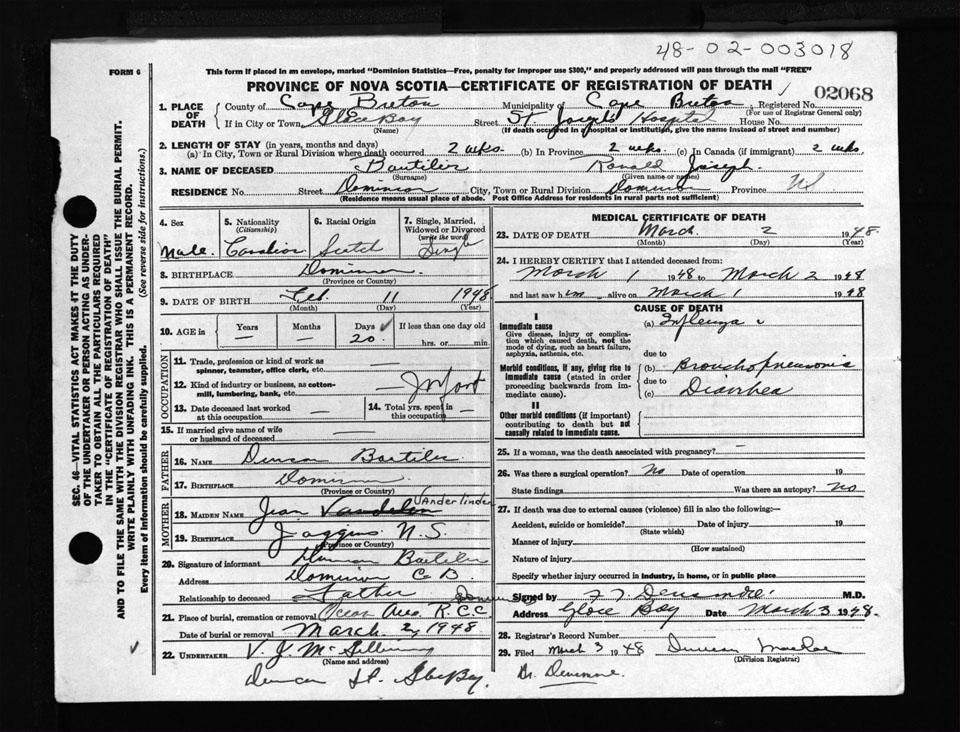 48-02-003018
FORM 6
This form if placed in an envelope, marked "Dominion Statistics—Free, penalty for improper use $300," and properly addressed will pass through the mail "FREE"
PROVINCE OF NOVA SCOTIA—CERTIFICATE OF REGISTRATION OF DEATH
02068
1. PLACE OF DEATH County of Cape Breton Municipality of Cape Breton Registered No.
(For use of Registrar General only)
If in City or Town Glace Bay Street St. Joseph's Hospital House No.
(Name) (If death occurred in hospital or institution, give the name instead of street and number)
2. LENGTH OF STAY (in years, months and days)
(a) In City, Town or Rural Division where death occurred 2 wks. (b) In Province 2 wks. (c) In Canada (if immigrant) 2 wks.
3. NAME OF DECEASED Ronald Joseph
(Surname) (Given name or names)
RESIDENCE No. Street Dominion City, Town or Rural Division Dominion Province NS
(Residence means usual place of abode. Post Office Address for residents in rural parts not sufficient)
4. Sex Male
5. Nationality (Citizenship) Canadian
6. Racial Origin Scotch
7. Single, Married, Widowed or Divorced (write the word) Single
8. BIRTHPLACE Dominion
(Province or Country)
9. DATE OF BIRTH Feb. 11 1948
(Month) (Day) (Year)
10. AGE in Years — Months — Days ✓ 20 If less than one day old hrs. or min.
OCCUPATION
11. Trade, profession or kind of work as spinner, teamster, office clerk, etc. —
12. Kind of industry or business, as cotton-mill, lumbering, bank, etc. Infant
13. Date deceased last worked at this occupation —
14. Total yrs. spent in this occupation —
15. If married give name of wife or husband of deceased —
FATHER
16. NAME Duncan
17. BIRTHPLACE Dominion
(Province or Country)
MOTHER
18. MAIDEN NAME Jean Vanderlinden
19. BIRTHPLACE Joggins N.S.
(Province or Country)
20. Signature of informant Duncan
Address Dominion C B
Relationship to deceased Father
21. Place of burial, cremation or removal R.C.C.
Date of burial or removal March 2, 1948
22. UNDERTAKER V. J. McGillivray
(Name and address)
Glace Bay
MEDICAL CERTIFICATE OF DEATH
23. DATE OF DEATH March 2 1948
(Month) (Day) (Year)
24. I HEREBY CERTIFY that I attended deceased from:
March 1 1948 to March 2 1948
and last saw him alive on March 1 1948
CAUSE OF DEATH
I
Immediate cause (a) Influenza
Give disease, injury or complication which caused death, not the mode of dying, such as heart failure, asphyxia, asthenia, etc.
due to
Morbid conditions, if any, giving rise to immediate cause (stated in order proceeding backwards from immediate cause).
(b) Bronchopneumonia
due to
(c) Diarrhea
II
Other morbid conditions (if important) contributing to death but not causally related to immediate cause.
25. If a woman, was the death associated with pregnancy? —
26. Was there a surgical operation? No Date of operation 19
State findings Was there an autopsy? No
27. If death was due to external causes (violence) fill in also the following:—
Accident, suicide or homicide? Date of injury 19
(State which)
Manner of injury
(How sustained)
Nature of injury
Specify whether injury occurred in industry, in home, or in public place
Signed by M.D.
Address Glace Bay Date March 3 1948.
28. Registrar's Record Number
29. Filed March 3 1948 Duncan
(Division Registrar)
SEC. 46—VITAL STATISTICS ACT MAKES IT THE DUTY OF THE UNDERTAKER OR PERSON ACTING AS UNDERTAKER TO OBTAIN ALL THE PARTICULARS REQUIRED IN THE "CERTIFICATE OF REGISTRATION OF DEATH" AND TO FILE THE SAME WITH THE DIVISION REGISTRAR WHO SHALL ISSUE THE BURIAL PERMIT.
WRITE PLAINLY WITH UNFADING INK. THIS IS A PERMANENT RECORD.
Every item of information should be carefully supplied. (See reverse side for instructions.)